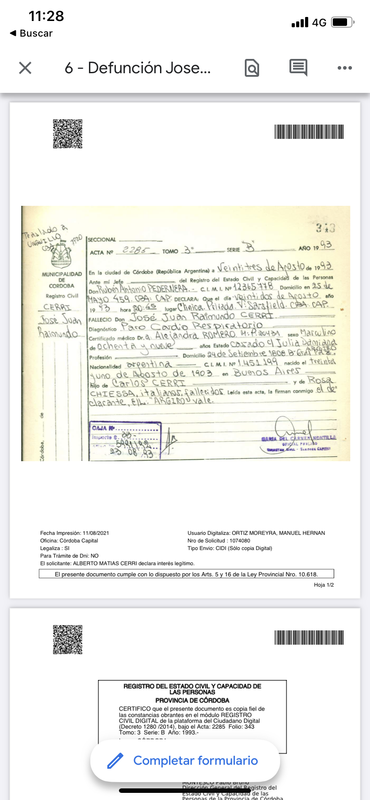 11:28
4G
Buscar
6 - Defunción Jose...
343
Traslado a
MUNICIPALIDAD
DE
CORDOBA
Registro Civil
CERRI
José Juan
Raimundo
SECCIONAL
ACTA Nº 2285 TOMO 3º SERIE "B" AÑO 1993
En la ciudad de Córdoba (República Argentina) a Veintitres de Agosto de 1993
Ante mi Jefe del Registro del Estado Civil y Capacidad de las Personas
Don Rubén Antonio PEDERNERA C.I.M.I. Nº 12345778 Domicilio en 25 de
Mayo 459 CBA. CAP. DECLARA: Que el día veintidos de Agosto año
1993 hora lugar Clínica Privada V. Sarsfield CBA CAP.
FALLECIO Don José Juan Raimundo CERRI
Diagnóstico Paro Cardio Respiratorio
Certificado médico Dra. Alejandra ROMERO M.P. sexo Masculino
de ochenta y nueve años Estado Casado
Profesión Domicilio 24 de Setiembre 1808
Nacionalidad argentina C.I.M.I. Nº 1.451.199 nacido el Treinta
Juno de Agosto de 1903 en Buenos Aires
hijo de Carlos CERRI y de Rosa
CHIESSA, italianos, fallecidos Leída esta acta, la firman conmigo el de
clarante, vale.
CAJA Nº
23 08 93
Fecha Impresión: 11/08/2021
Oficina: Córdoba Capital
Legaliza : SI
Para Trámite de Dni: NO
El solicitante: ALBERTO MATIAS CERRI declara interés legítimo.
Usuario Digitaliza: ORTIZ MOREYRA, MANUEL HERNAN
Nro de Solicitud : 1074080
Tipo Envio: CIDI (Sólo copia Digital)
El presente documento cumple con lo dispuesto por los Arts. 5 y 16 de la Ley Provincial Nro. 10.618.
Hoja 1/2
REGISTRO DEL ESTADO CIVIL Y CAPACIDAD DE
LAS PERSONAS
PROVINCIA DE CORDOBA
CERTIFICO que el presente documento es copia fiel de
las constancias obrantes en el módulo REGISTRO
CIVIL DIGITAL de la plataforma del Ciudadano Digital
(Decreto 1280 /2014), bajo el Acta: 2285 Folio: 343
Tomo: 3 Serie: B Año: 1993.-
Completar formulario
Dirección General del Registro del
Estado Civil y Capacidad de las
Personas de la Provincia de Córdoba